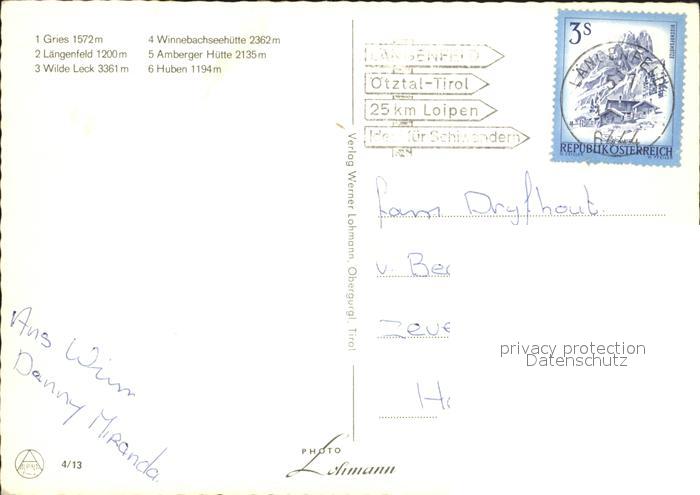 1 Gries 1572 m
2 Längenfeld 1200 m
3 Wilde Leck 3361 m
4 Winnebachseehütte 2362 m
5 Amberger Hütte 2135 m
6 Huben 1194 m
LÄNGENFELD
Ötztal-Tirol
25 km Loipen
für Schiwandern
3S
LÄNGENFELD
REPUBLIK ÖSTERREICH
Verlag Werner Lohmann, Obergurgl, Tirol
fam Dryfhout.
v. Be
Zeve
H
privacy protection
Datenschutz
Ans Wim
Danny Miranda.
4/13
PHOTO
Lohmann